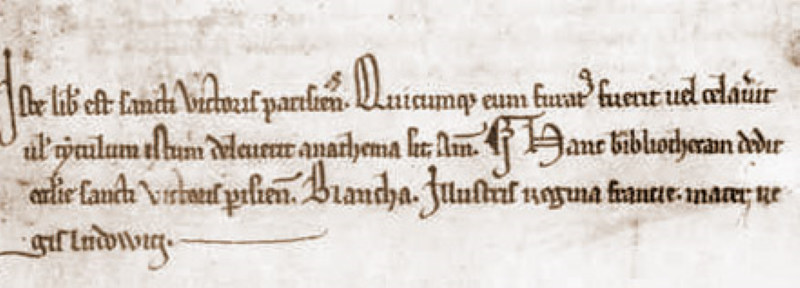 Iste lib̄ est sancti Victoris parisień. Quicumqȝ eum furatꝰ fuerit uel celauerit
ul' tytulum istum deleuerit anathema sit. Am̄. ¶ Hanc bibliothecam dedit
ecclīe sancti Victoris ꝑisień. Blancha. Jllustris regina francie. mater re
gis Ludowici.